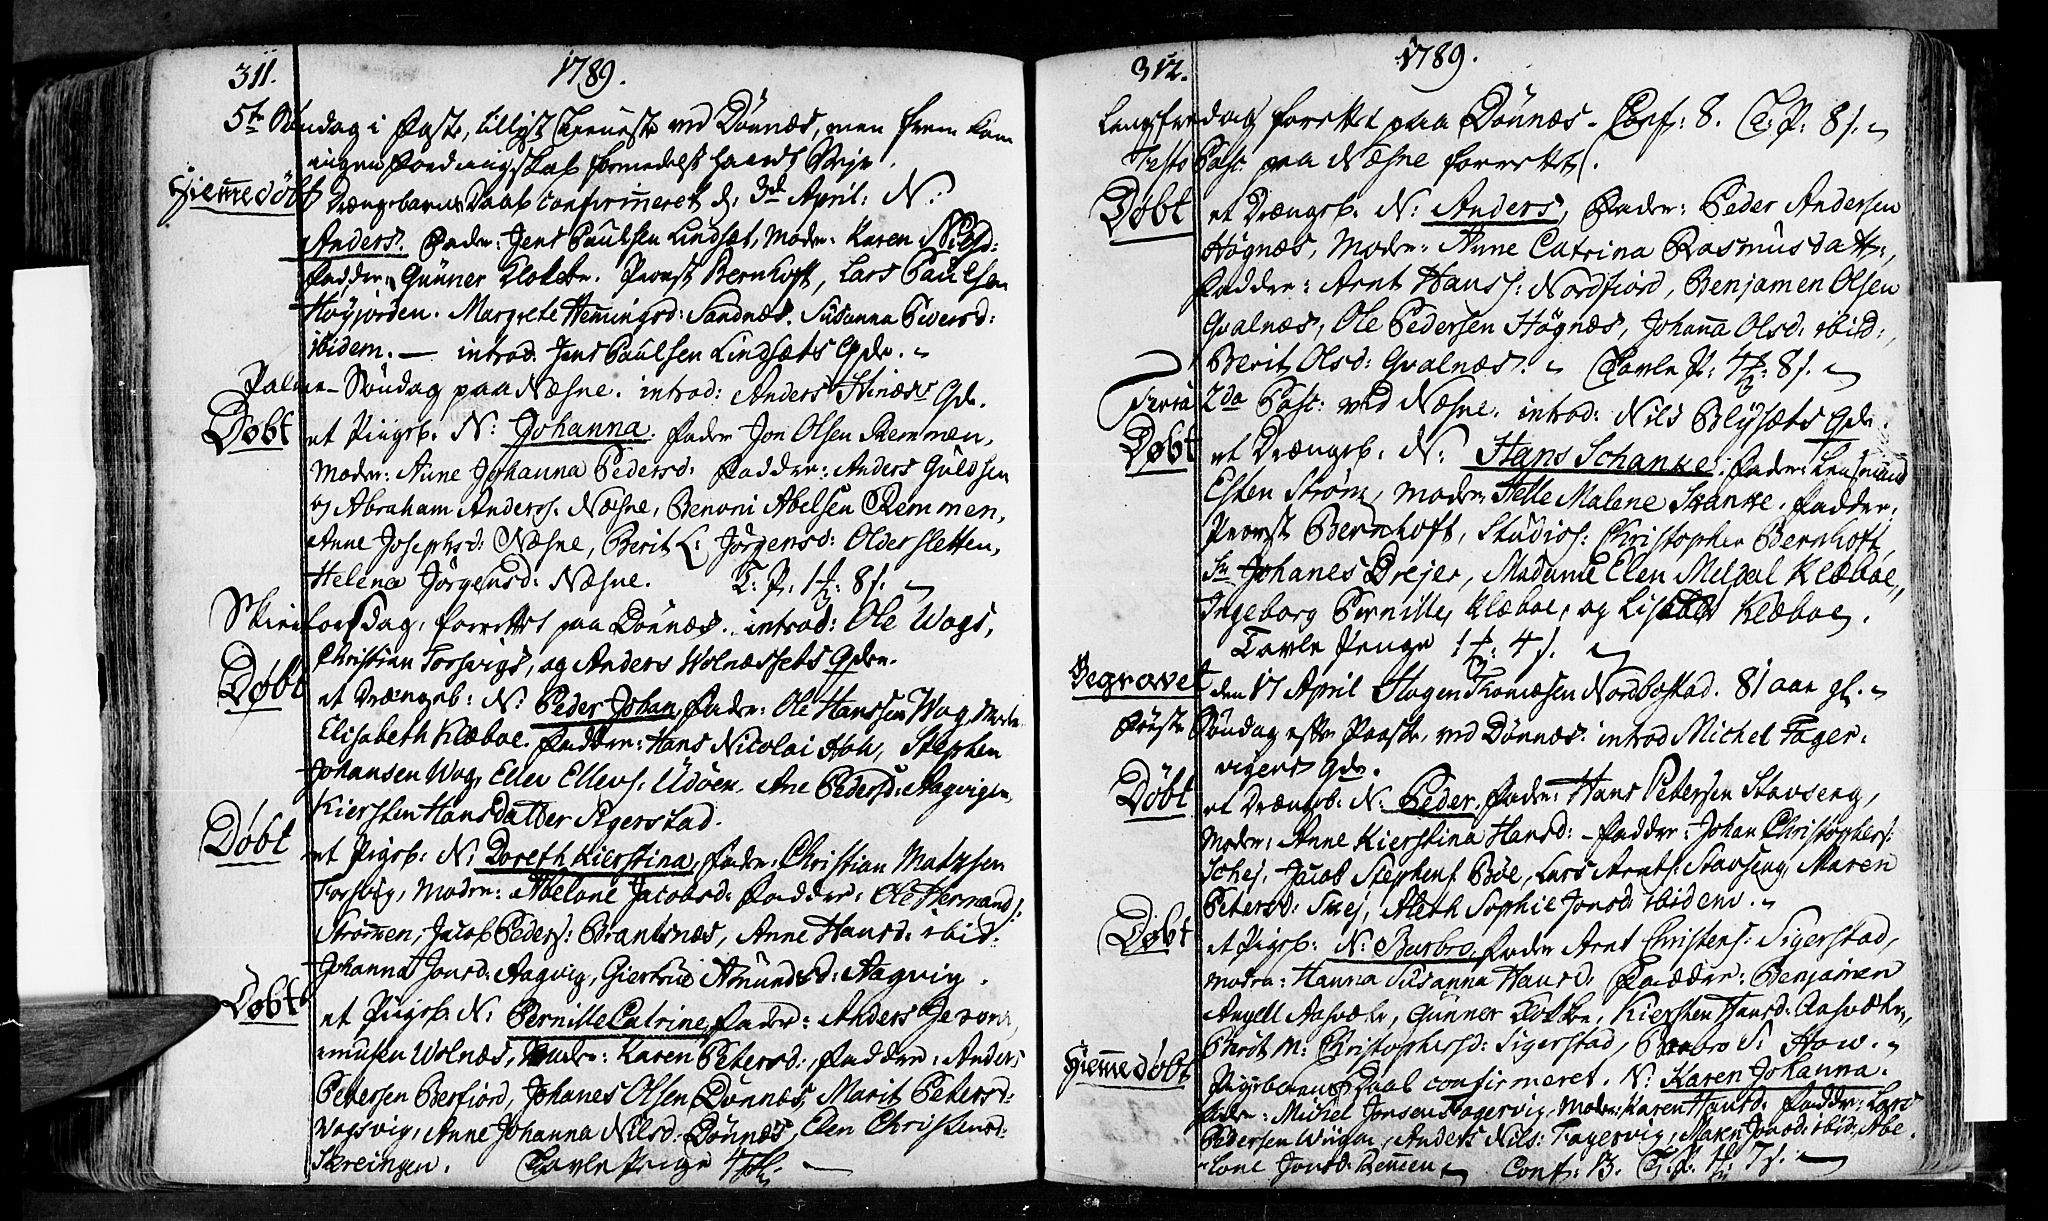 311.
1789.
5te Söndag i Faste, tilligst Tienneste ved Dönnæs, men frem kom
ingen formedelst haardt Vejr.
Hiemmedöbt
Drængebarns Daab confirmeret d: 3de April: N:
Anders. Fader: Jens Paulsen Lindset, Moder: Karen Nilsd:
Faddere Gunner Klokker. Provst Bernhoft, Lars Paulsen
Höyjorden. Margrete Hemingsd: Sandnæs. Susanna Iversd:
ibidem. — introd. Jens Paulsen Lindsets Qde.
Palme-Söndag paa Næsne. introd: Anders Qde.
Döbt
et Pigeb. N: Johanna. Fader Jon Olsen Remmen,
Moder: Anne Johanna Pedersd. Faddere: Anders Guldsen
og Abraham Anderss. Næsne, Benoni Abelsen Remmen,
Anne Josephsd: Næsne, Berit L: Jörgensd: Oldersletten,
Helena Jörgensd: Næsne. T: P: 1 8 s.
Skirtorsdag, forrettet paa Dönnæs. introd: Ole Wogs,
Christian Torsvigs, og Anders Wolnæssets Qder.
Döbt
et Drængeb: N: Peder Johan, Fader: Ole Hanssen Wog, Moder
Elisabeth Klæboe. Faddere: Hans Nicolai How, Stephen
Johansen Wog, Eller Ellevs: Udöen. Ane Pedersd: Aagvigen,
Kiersten Hansdatter Sigerstad.
Döbt
et Pigeb: N: Doreth Kierstina, Fader: Christian Matzsen
Torsvig, Moder: Abelone Jacobsd: Faddere: Ole Hernands:
Strömmen, Jacob Peders: Brantsnæs, Anne Hansd: ibid:
Johanna Jonsd: Aagvig, Giertrue Amundsd: Aagvig.
Döbt
et Pigeb. N: Pernille Catrine, Fader: Anders
Wolnæs, Moder: Karen Petersd:, Faddere: Anders
Petersen Berfiord, Johanes Olsen Dönnæs, Marit Petersd:
Vogsvig, Anne Johanna Nilsd: Dönnæs, Elen Christensd:
Skreingen. Tavle Penge 4
312.
1789.
Langfredag forrettet paa Dönnæs. Conf: 8. T: P: 8 s.
Festo Pasc. paa Næsne forrettet.
Döbt
et Drængeb. N: Anders, Fader: Peder Andersen
Högnæs, Moder: Anne Catrina Rasmusdatt:,
Faddere: Arnt Hanss: Nordfiord, Benjamen Olsen
Qvalnæs, Ole Pedersen Högnæs, Johanna Olsd: ibid:,
Berit Olsd: Qvalnæs. Tavle P: 4 8 s.
Feria 2da Pasc: ved Næsne. introd: Nils Blysets Qde.
Döbt
et Drængeb. N: Hans Schanke. Fader: Lensmand
Esten Ström, Moder Helle Malene Skanke. Faddere:
Provst Bernhoft, Studios: Christopher Bernhoft,
Sr Johanes Drejer, Madame Elen Metzel Klæboe,
Ingeborg Pernille Klæboe, og Klæboe.
Tavle Penge 1 4 s.
Begravet
den 17 April Hagen Thomesen Nordbostad. 81 aar gl.
Förste Söndag efter Paaske, ved Dönnæs. introd Michel Fager-
vigens Qde.
Döbt
et Drængeb. N: Peder. Fader: Hans Petersen Stavseng,
Moder: Anne Kierstina Hansd: Faddere: Johan Christophers:
Schej, Jacob Stephens Böe, Lars Arnts: Stavseng, Maren
Petersd: Skej, Aleth Sophie Jonsd ibidem.
Döbt
et Pigeb: N: Barbro. Fader Arnt Christens: Sigerstad,
Modra: Hanna Susanna Hansd: Faddere: Benjamen
Angell Aasvær, Gunner Klokker, Kiersten Hansd: Aasvær,
Berit M: Christophersd: Sigerstad, Barbro S: How.
Hiemmedöbt
Pigebarns Daab confirmeret. N: Karen Johanna.
Fader: Michel Jonsen Fagervig, Moder: Karen Hansd: Faddere: Lars
Pedersen, Anders Nils: Fagervig, Maren Jonsd: ibid:, Abe-
lone Jonsd: Remmen. Conf: 13. T: P: 7 s.